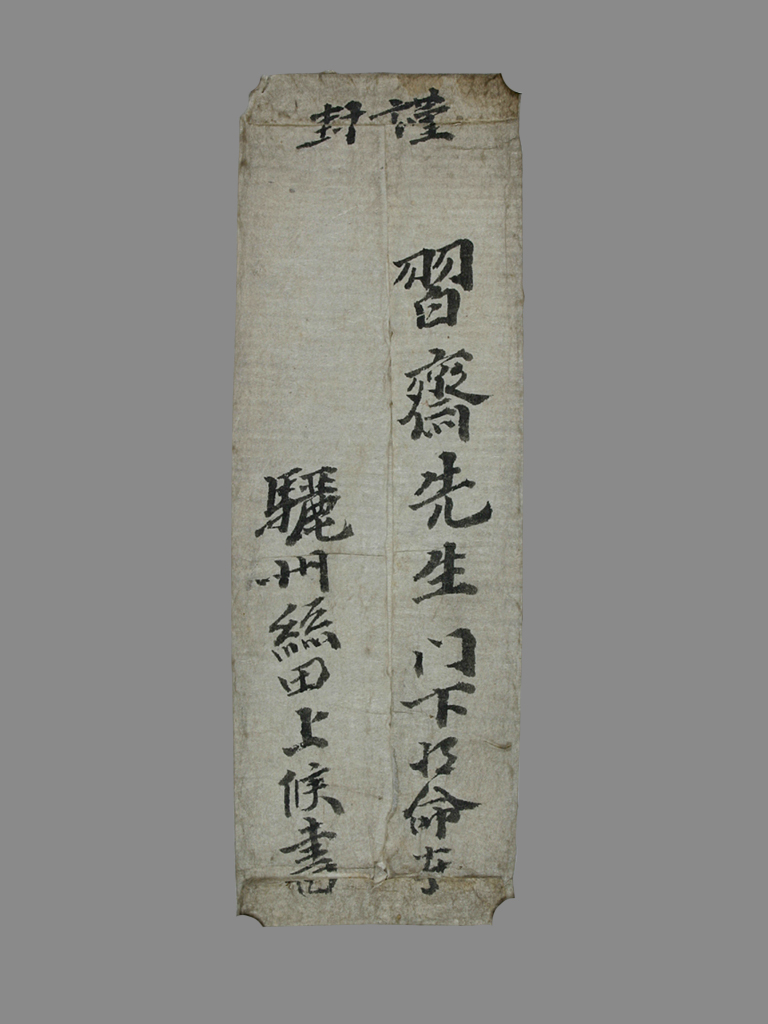 謹封
習齋先生門下将命者
驪州絲田上候書